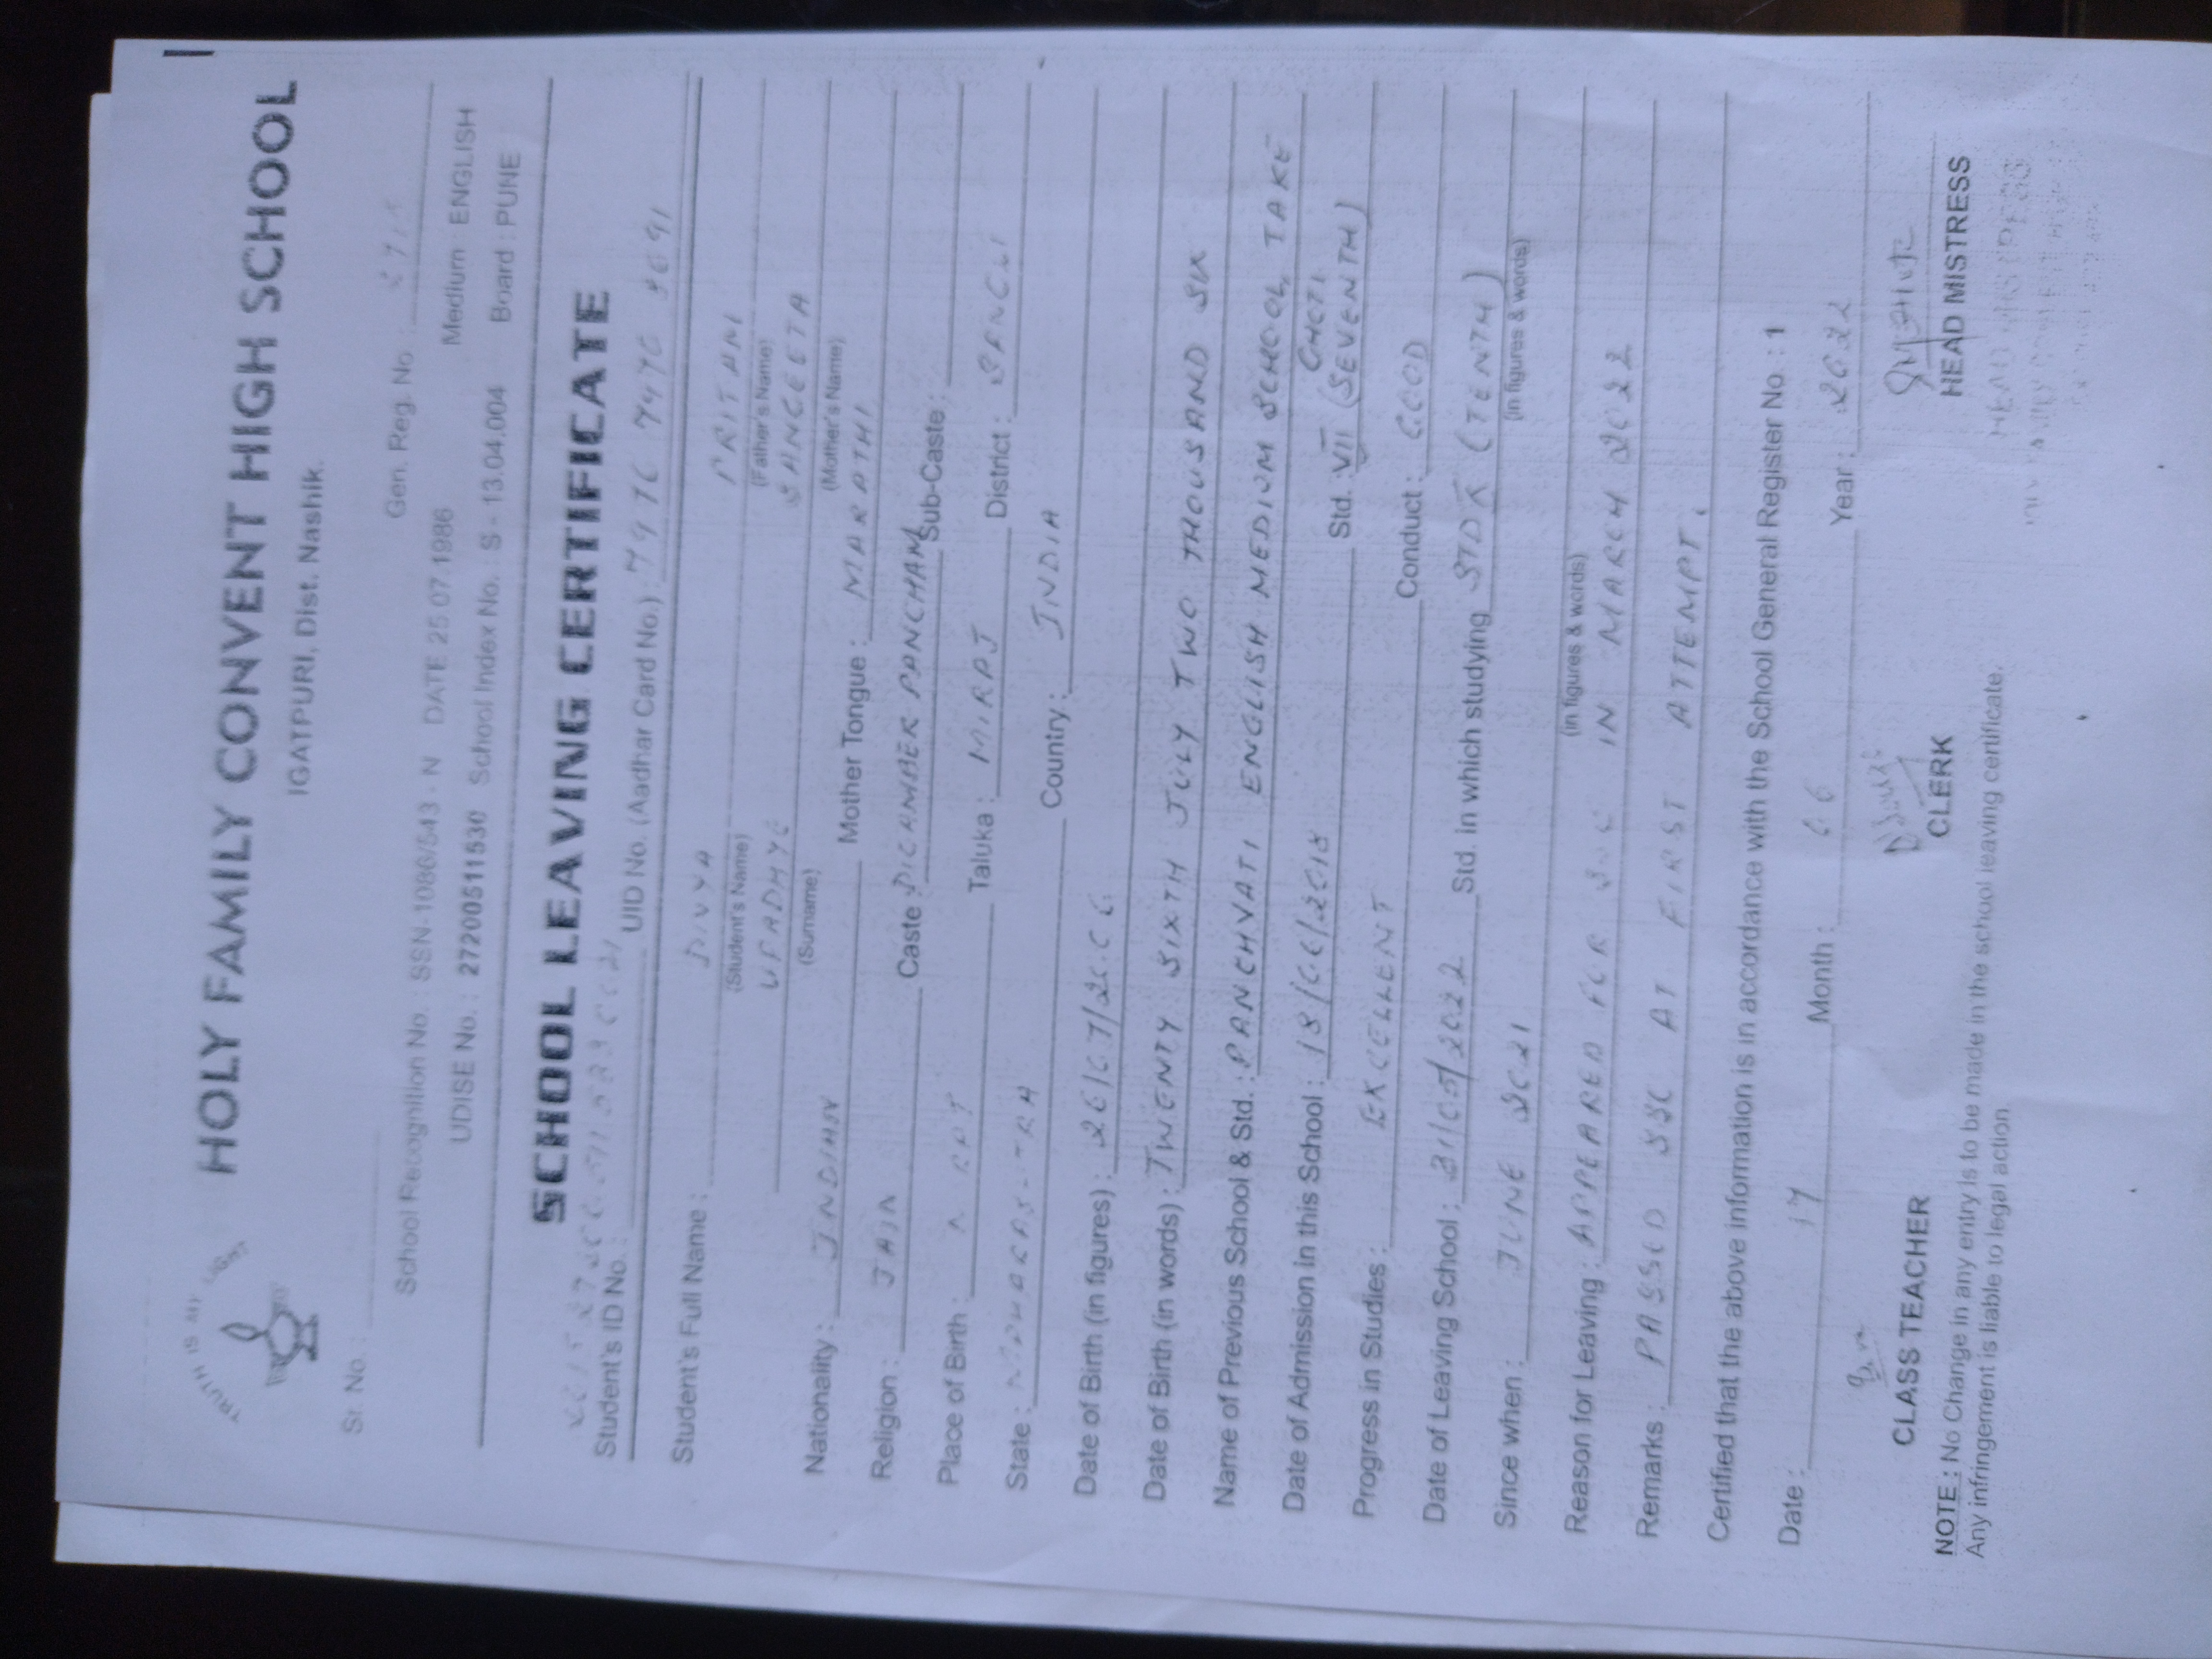 TRUTH IS MY LIGHT
HOLY FAMILY CONVENT HIGH SCHOOL
IGATPURI, Dist. Nashik.
Sr. No. :
Gen. Reg. No :
School Recognition No. : SSN-1086/543 - N DATE 25 07 1986 Medium ENGLISH
UDISE No. : 27200511530 School Index No. : S - 13.04.004 Board : PUNE
SCHOOL LEAVING CERTIFICATE
Student's ID No. : UID No. (Aadhar Card No.) :
Student's Full Name : DIVYA PRITAM
(Student's Name) (Father's Name)
UPADHYE SANGEETA
(Surname) (Mother's Name)
Nationality : INDIAN Mother Tongue : MARATHI
Religion : JAIN Caste : DIGAMBER PANCHAM Sub-Caste :
Place of Birth : Taluka : MIRAJ District : SANGLI
State : MAHARASHTRA Country : INDIA
Date of Birth (in figures) : 26/07/2006
Date of Birth (in words) : TWENTY SIXTH JULY TWO THOUSAND SIX
Name of Previous School & Std. : PANCHVATI ENGLISH MEDIUM SCHOOL, TAKE
GHOTI
Date of Admission in this School : 18/06/2018 Std. : VII (SEVENTH)
Progress in Studies : EXCELLENT Conduct : GOOD
Date of Leaving School : 31/05/2022 Std. in which studying STD X (TENTH)
Since when : JUNE 2021 (in figures & words)
(in figures & words)
Reason for Leaving : APPEARED FOR SSC IN MARCH 2022
Remarks : PASSED SSC AT FIRST ATTEMPT.
Certified that the above information is in accordance with the School General Register No. : 1
Date : 17 Month : 06 Year : 2022
CLASS TEACHER CLERK HEAD MISTRESS
NOTE : No Change in any entry is to be made in the school leaving certificate.
Any infringement is liable to legal action.
HEAD MISTRESS